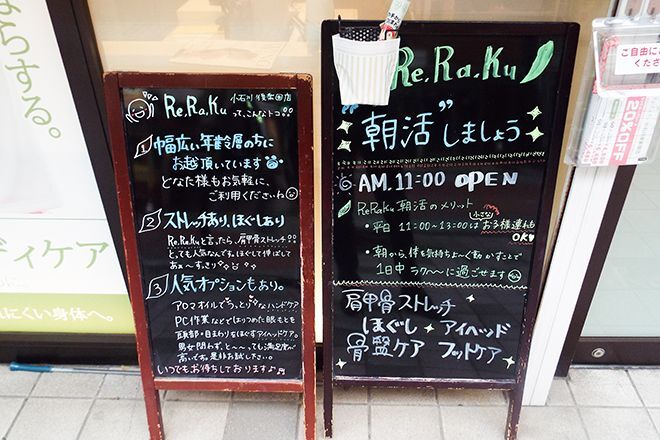 Re.Ra.Ku 小石川後楽園店
って、こんなトコ
1 幅広い年齢層の方に
お越頂いています
どなた様もお気軽に、
ご利用くださいね
2 ストレッチあり、ほぐしあり
Re.Ra.Kuと言ったら、肩甲骨ストレッチ
とっても人気なんです。ほぐして伸ばして
あぁ〜すっきり
3 人気オプションもあり。
アロマオイルでうっとりなハンドケア
PC作業などではりつめた眼もとを
頭部・目まわりをほぐすアイヘッドケア。
男女問わず、と〜っても満足度が
高いです。是非お試し下さい。
いつでもお待ちしております♪
Re.Ra.Ku
"朝活"しましょう
AM.11:00 OPEN
ReRaku 朝活のメリット
・平日 11:00~13:00は 小さな お子様連れも
OK
・朝から体を気持ちよ〜く動かすことで
1日中ラク〜に過ごせます
肩甲骨ストレッチ
ほぐし アイヘッド
骨盤ケア フットケア
らする。
ディケア
にくい身体へ。
ご自由に
ください
20%OFF